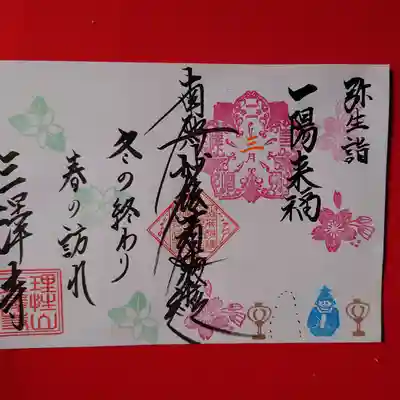 弥生詣
一陽来福
三月
南無妙法蓮華経
冬の終わり
春の訪れ
三澤寺